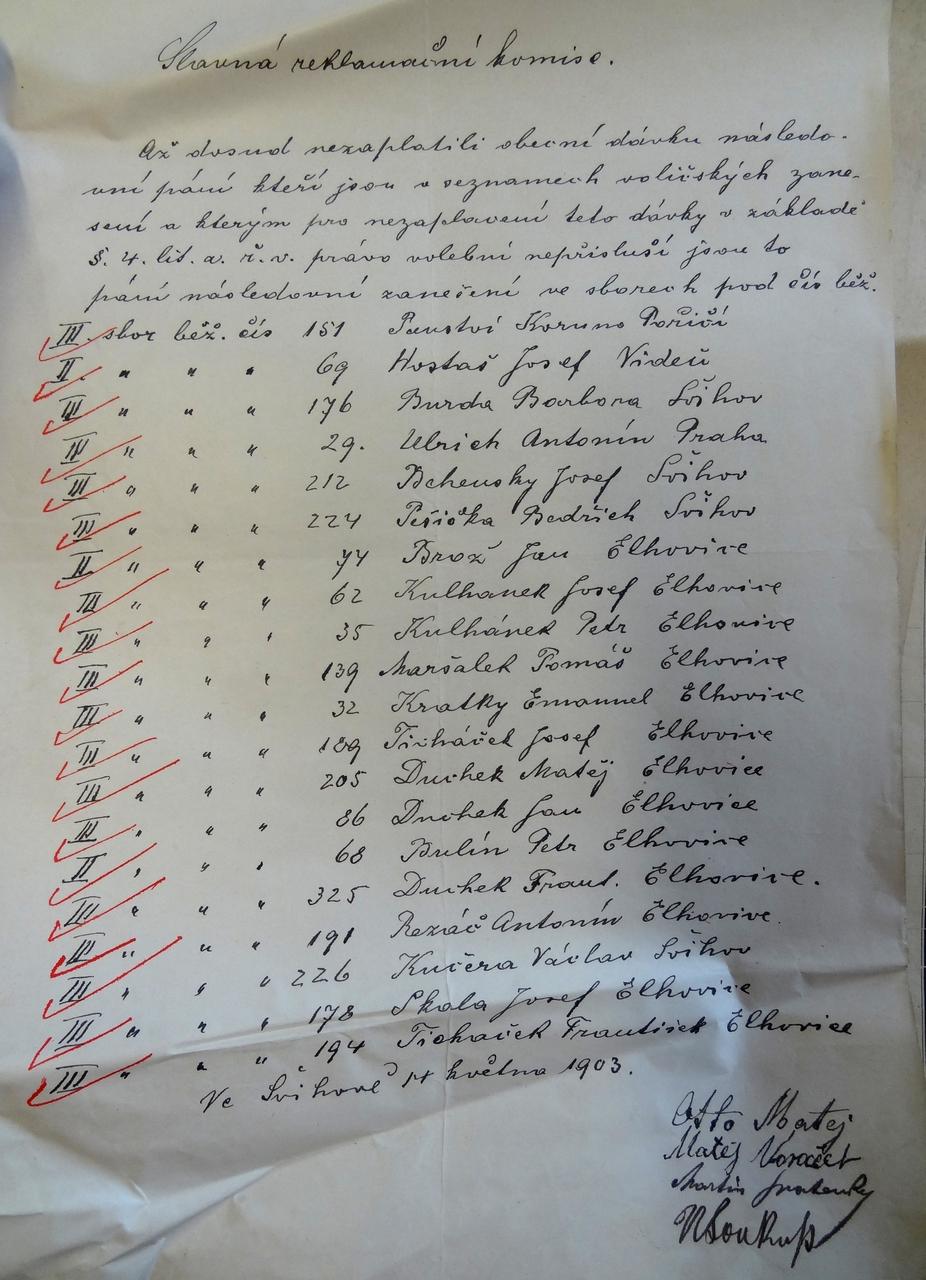 Slavná reklamační komise.
Až dosud nezaplatili obecní dávku následo-
vní páni kteří jsou v seznamech voličských zane-
sení a kterým pro nezaplavení teto dávky v základě
§. 4. lit. a. ř. v. právo volební nepřísluší jsou to
páni následovní zanešení ve sborech pod čís běž.
III. sbor běž. čís 151 Panství Koruno Poříčí
II. " " " 69 Hostaš Josef Videň
III " " " 176 Burda Barbora Švihov
III " " " 29. Ulrich Antonín Praha
III " " " 212 Josef Švihov
III " " " 224 Pešička Bedřich Švihov
II " " " 74 Brož Jan Elhovice
III " " " 62 Kulhanek Josef Elhovice
III " " " 35 Kulhánek Petr Elhovice
III " " " 139 Maršalek Tomáš Elhovice
III " " " 32 Kratky Emanuel Elhovice
III " " " 189 Ticháček Josef Elhovice
III " " " 205 Duchek Matěj Elhovice
II " " " 86 Duchek Jan Elhovice
II " " " 68 Bulín Petr Elhovice
III " " " 325 Duchek Frant. Elhovice.
II " " " 191 Rezáč Antonín Elhovice.
III " " " 226 Kučera Václav Švihov
III " " " 178 Skala Josef Elhovice
III " " " 194 Tichaček František Elhovice
Ve Švihově 14 května 1903.
Otto Matej
Matěj
Martin
Soukup